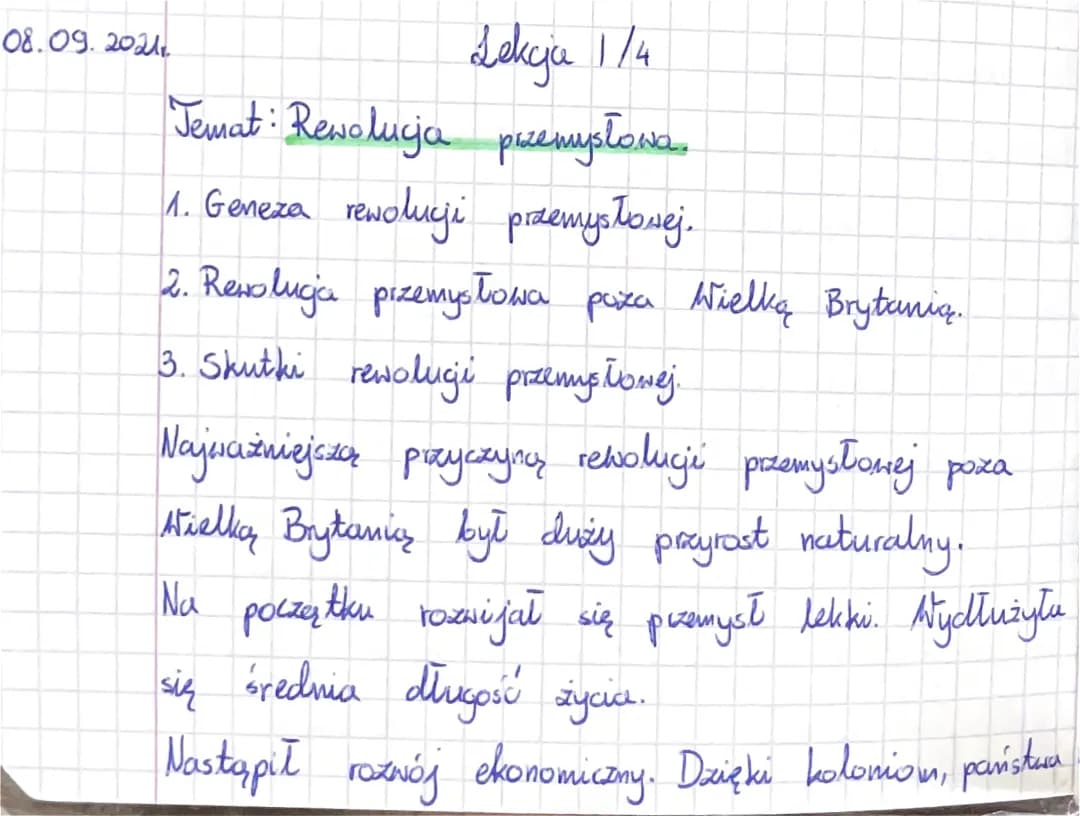 08.09.2021r.
Lekcja 1/4
Temat: Rewolucja przemysłowa.
1. Geneza rewolucji przemysłowej.
2. Rewolucja przemysłowa poza Wielką Brytanią.
3. Skutki rewolucji przemysłowej.
Najważniejszą przyczyną rewolucji przemysłowej poza
Wielką Brytanią był duży przyrost naturalny.
Na początku rozwijał się przemysł lekki. Wydłużyła
się średnia długość życia.
Nastąpił rozwój ekonomiczny. Dzięki koloniom, państwa